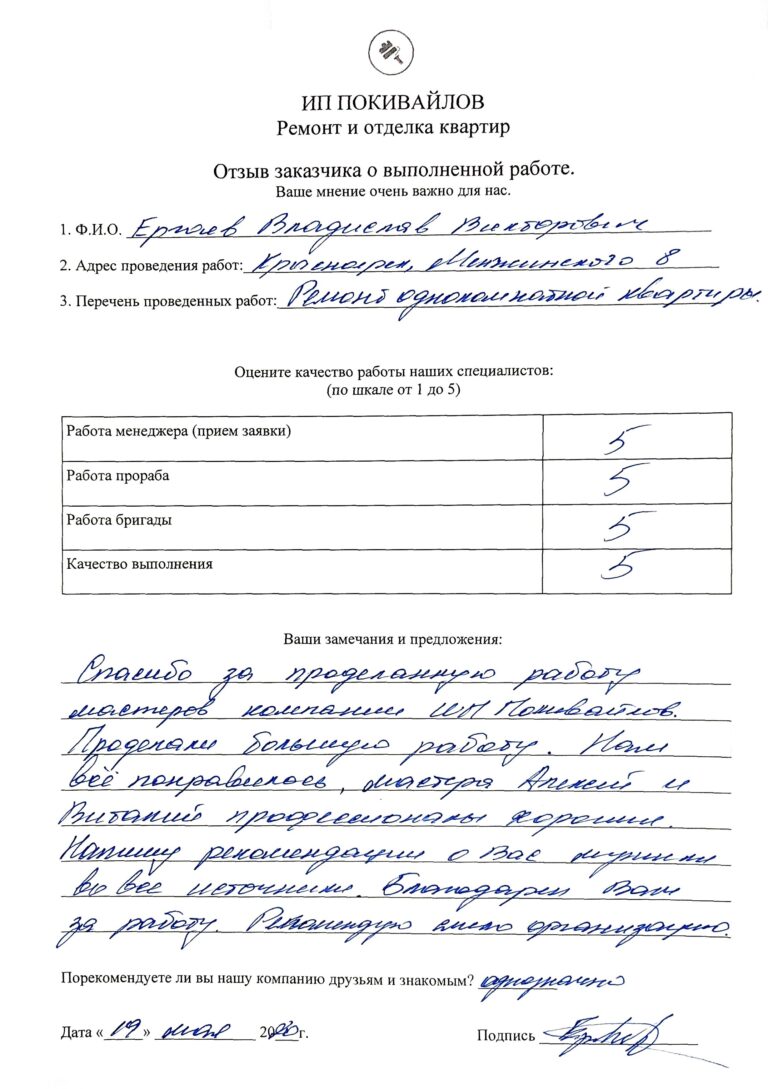 ИП ПОКИВАЙЛОВ
Ремонт и отделка квартир
Отзыв заказчика о выполненной работе.
Ваше мнение очень важно для нас.
1. Ф.И.О. Владислав Викторович
2. Адрес проведения работ: Красноярск, Менжинского 8
3. Перечень проведенных работ: Ремонт однокомнатной квартиры.
Оцените качество работы наших специалистов:
(по шкале от 1 до 5)
Работа менеджера (прием заявки) 5
Работа прораба 5
Работа бригады 5
Качество выполнения 5
Ваши замечания и предложения:
Спасибо за проделанную работу
мастеров компании ИП Покивайлов.
Проделали большую работу. Нам
всё понравилось, мастера Алексей и
Виталий профессионалы хорошие.
Напишу рекомендации о Вас
во все источники. Благодарен Вам
за работу. Рекомендую организацию.
Порекомендуете ли вы нашу компанию друзьям и знакомым? однозначно
Дата «19» мая г. Подпись